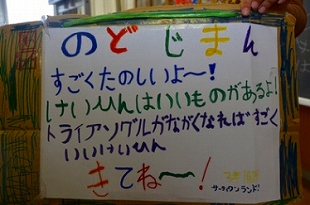 のどじまん
すごくたのしいよ〜!
けいひんはいいものがあるよ!
トライアングルがながくなればすごく
いいけいひん
きてね〜!